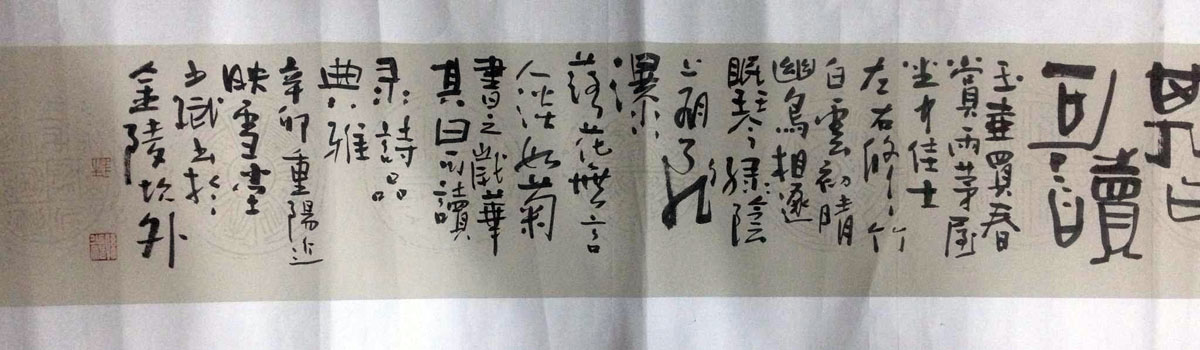 其曰
可讀
玉壺買春
賞雨茅屋
坐中佳士
左右脩竹
白雲初晴
幽鳥相逐
眠琴綠陰
上有飛
瀑
落花無言
人淡如菊
書之歲華
其曰可讀
录詩品
典雅
辛卯重陽近
映雪堂
主斌书於
金陵城外